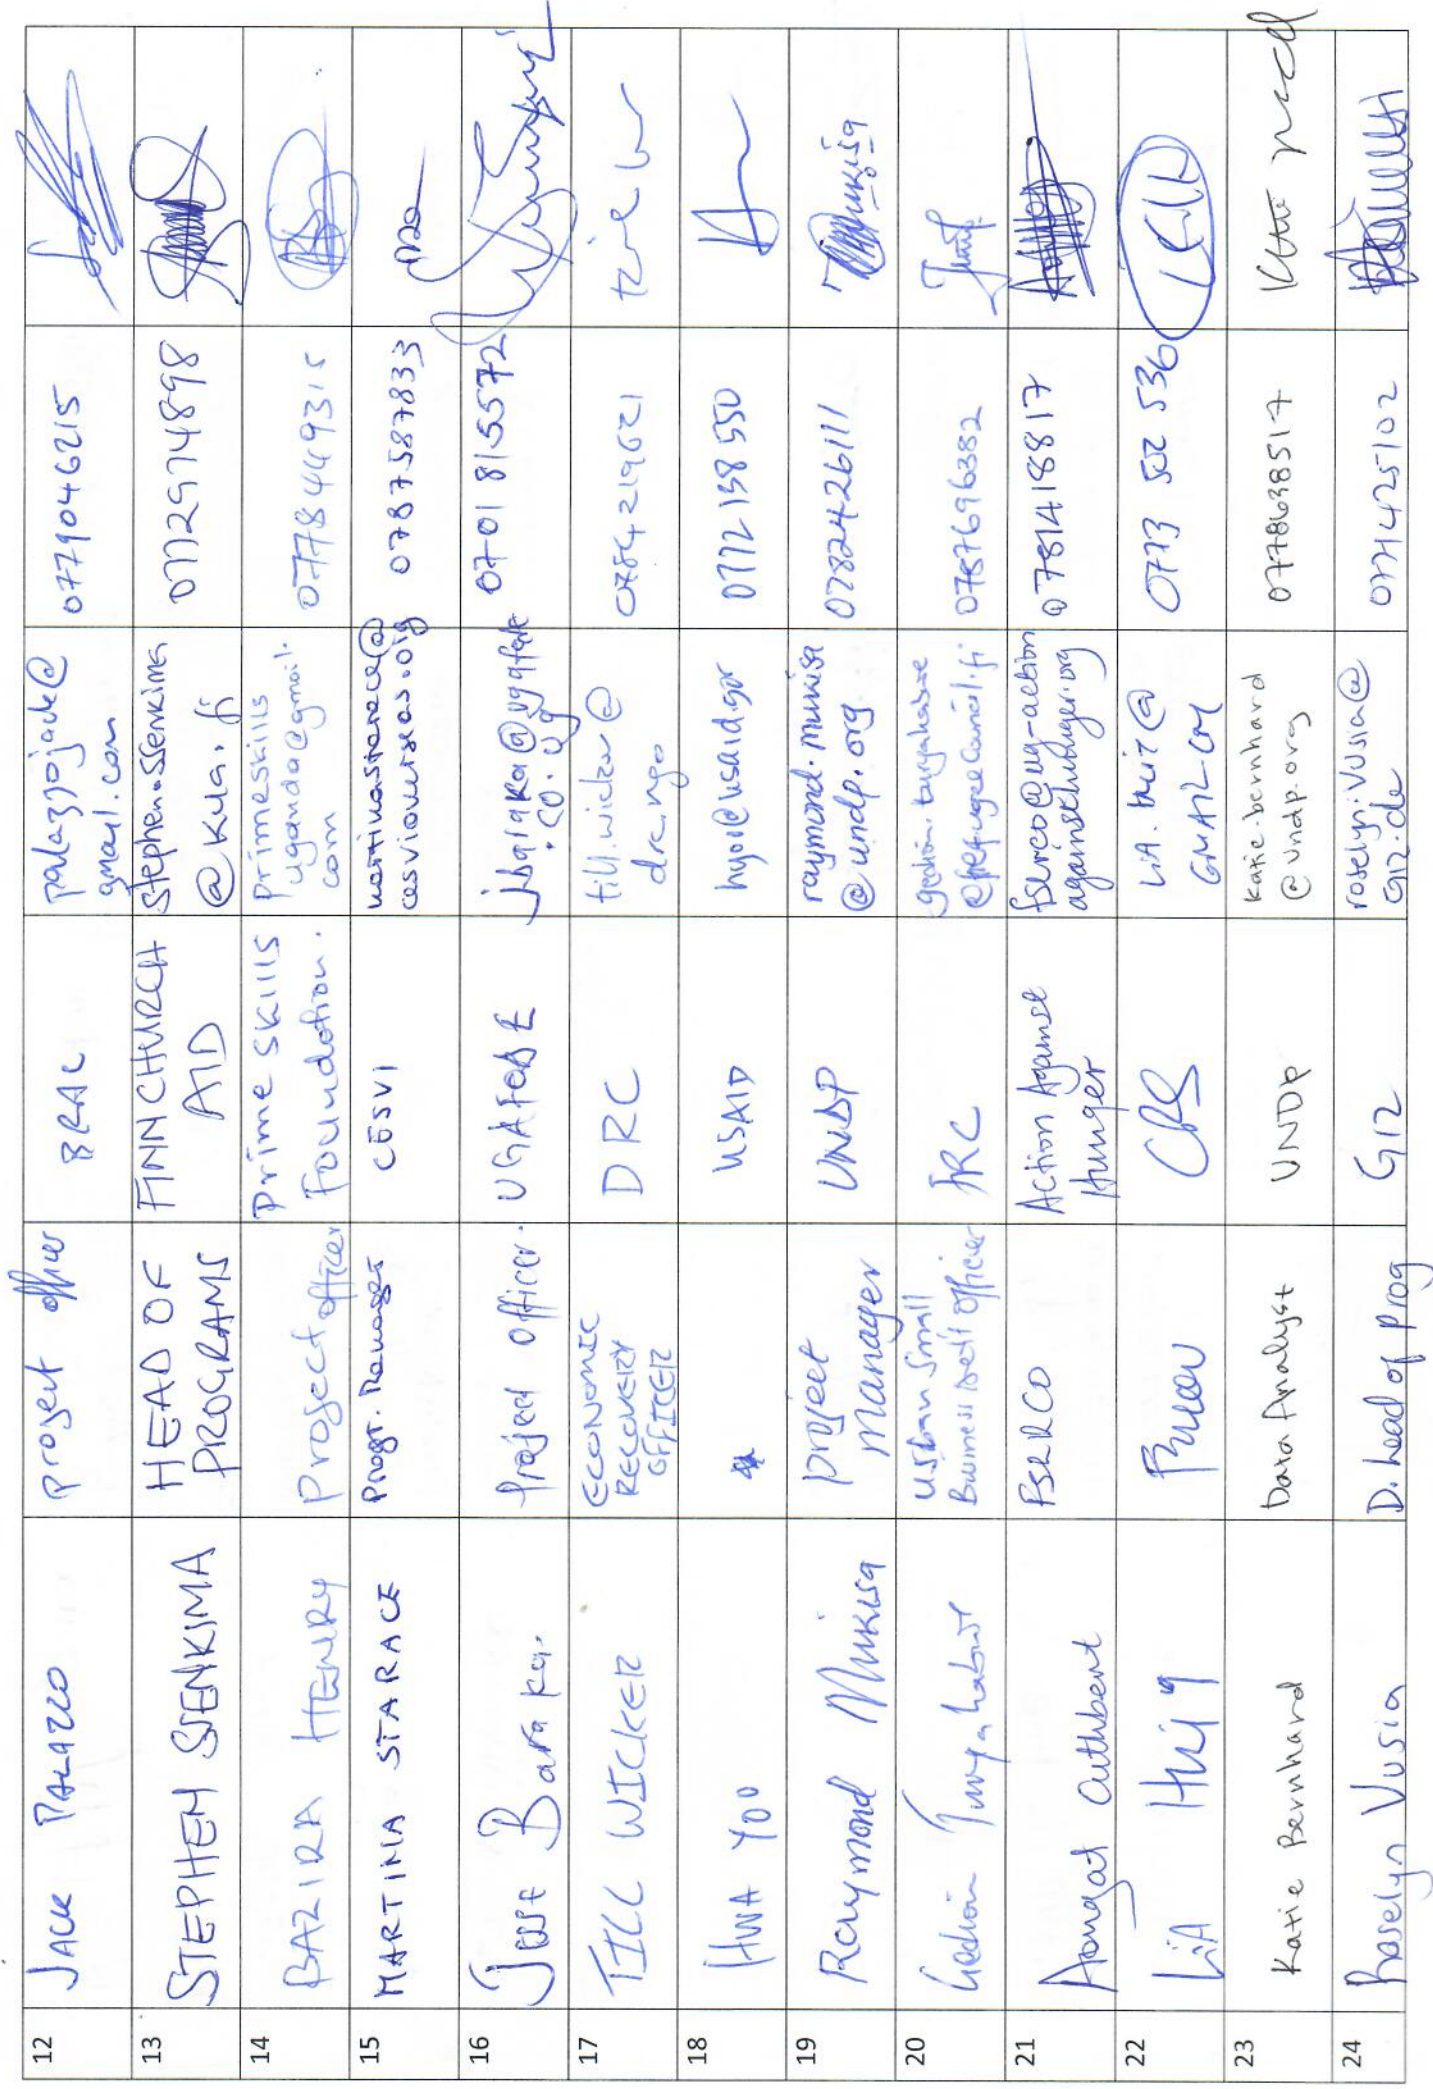 12
JACK PALAZZO
project officer
BRAC
palazzojack@
gmail.com
0779046215
13
STEPHEN SSENKIMA
HEAD OF
PROGRAMS
FINN CHURCH
AID
Stephen.Ssenkima
@kua.fi
0772974898
14
BAZIRA HENRY
Project officer
Prime Skills
Foundation.
Primeskills
uganda@gmail.
com
0778449315
15
MARTINA STARACE
Progr. Manager
CESVI
martinastarace@
cesvioverseas.org
0787587833
16
Baraka.
Project Officer.
UGAFODE
jbaraka@ugafode
.co.ug
0701815572
17
TILL WICKER
ECONOMIC
RECOVERY
OFFICER
DRC
till.wicker@
drc.ngo
0784219621
18
HWA YOO
USAID
hyoo@usaid.gov
0772138550
19
Raymond Mukisa
project
manager
UNDP
raymond.mukisa
@undp.org
0782426111
20
Gedion Turyahabwe
Urban Small
Business Dev't Officer
gedion.turyahabwe
@refugeecouncil.fi
0787696382
21
Acuthbert
FSLRCO
Action Against
Hunger
fslrco@ug-action
againsthunger.org
0781418817
22
LIA
CRS
@
GMAIL.COM
0773 502 536
23
Katie Bernhard
Data Analyst
UNDP
katie.bernhard
@undp.org
0778638517
24
Roselyn Vusia
D. head of prog
GIZ
roselyn.vusia@
giz.de
0774425102